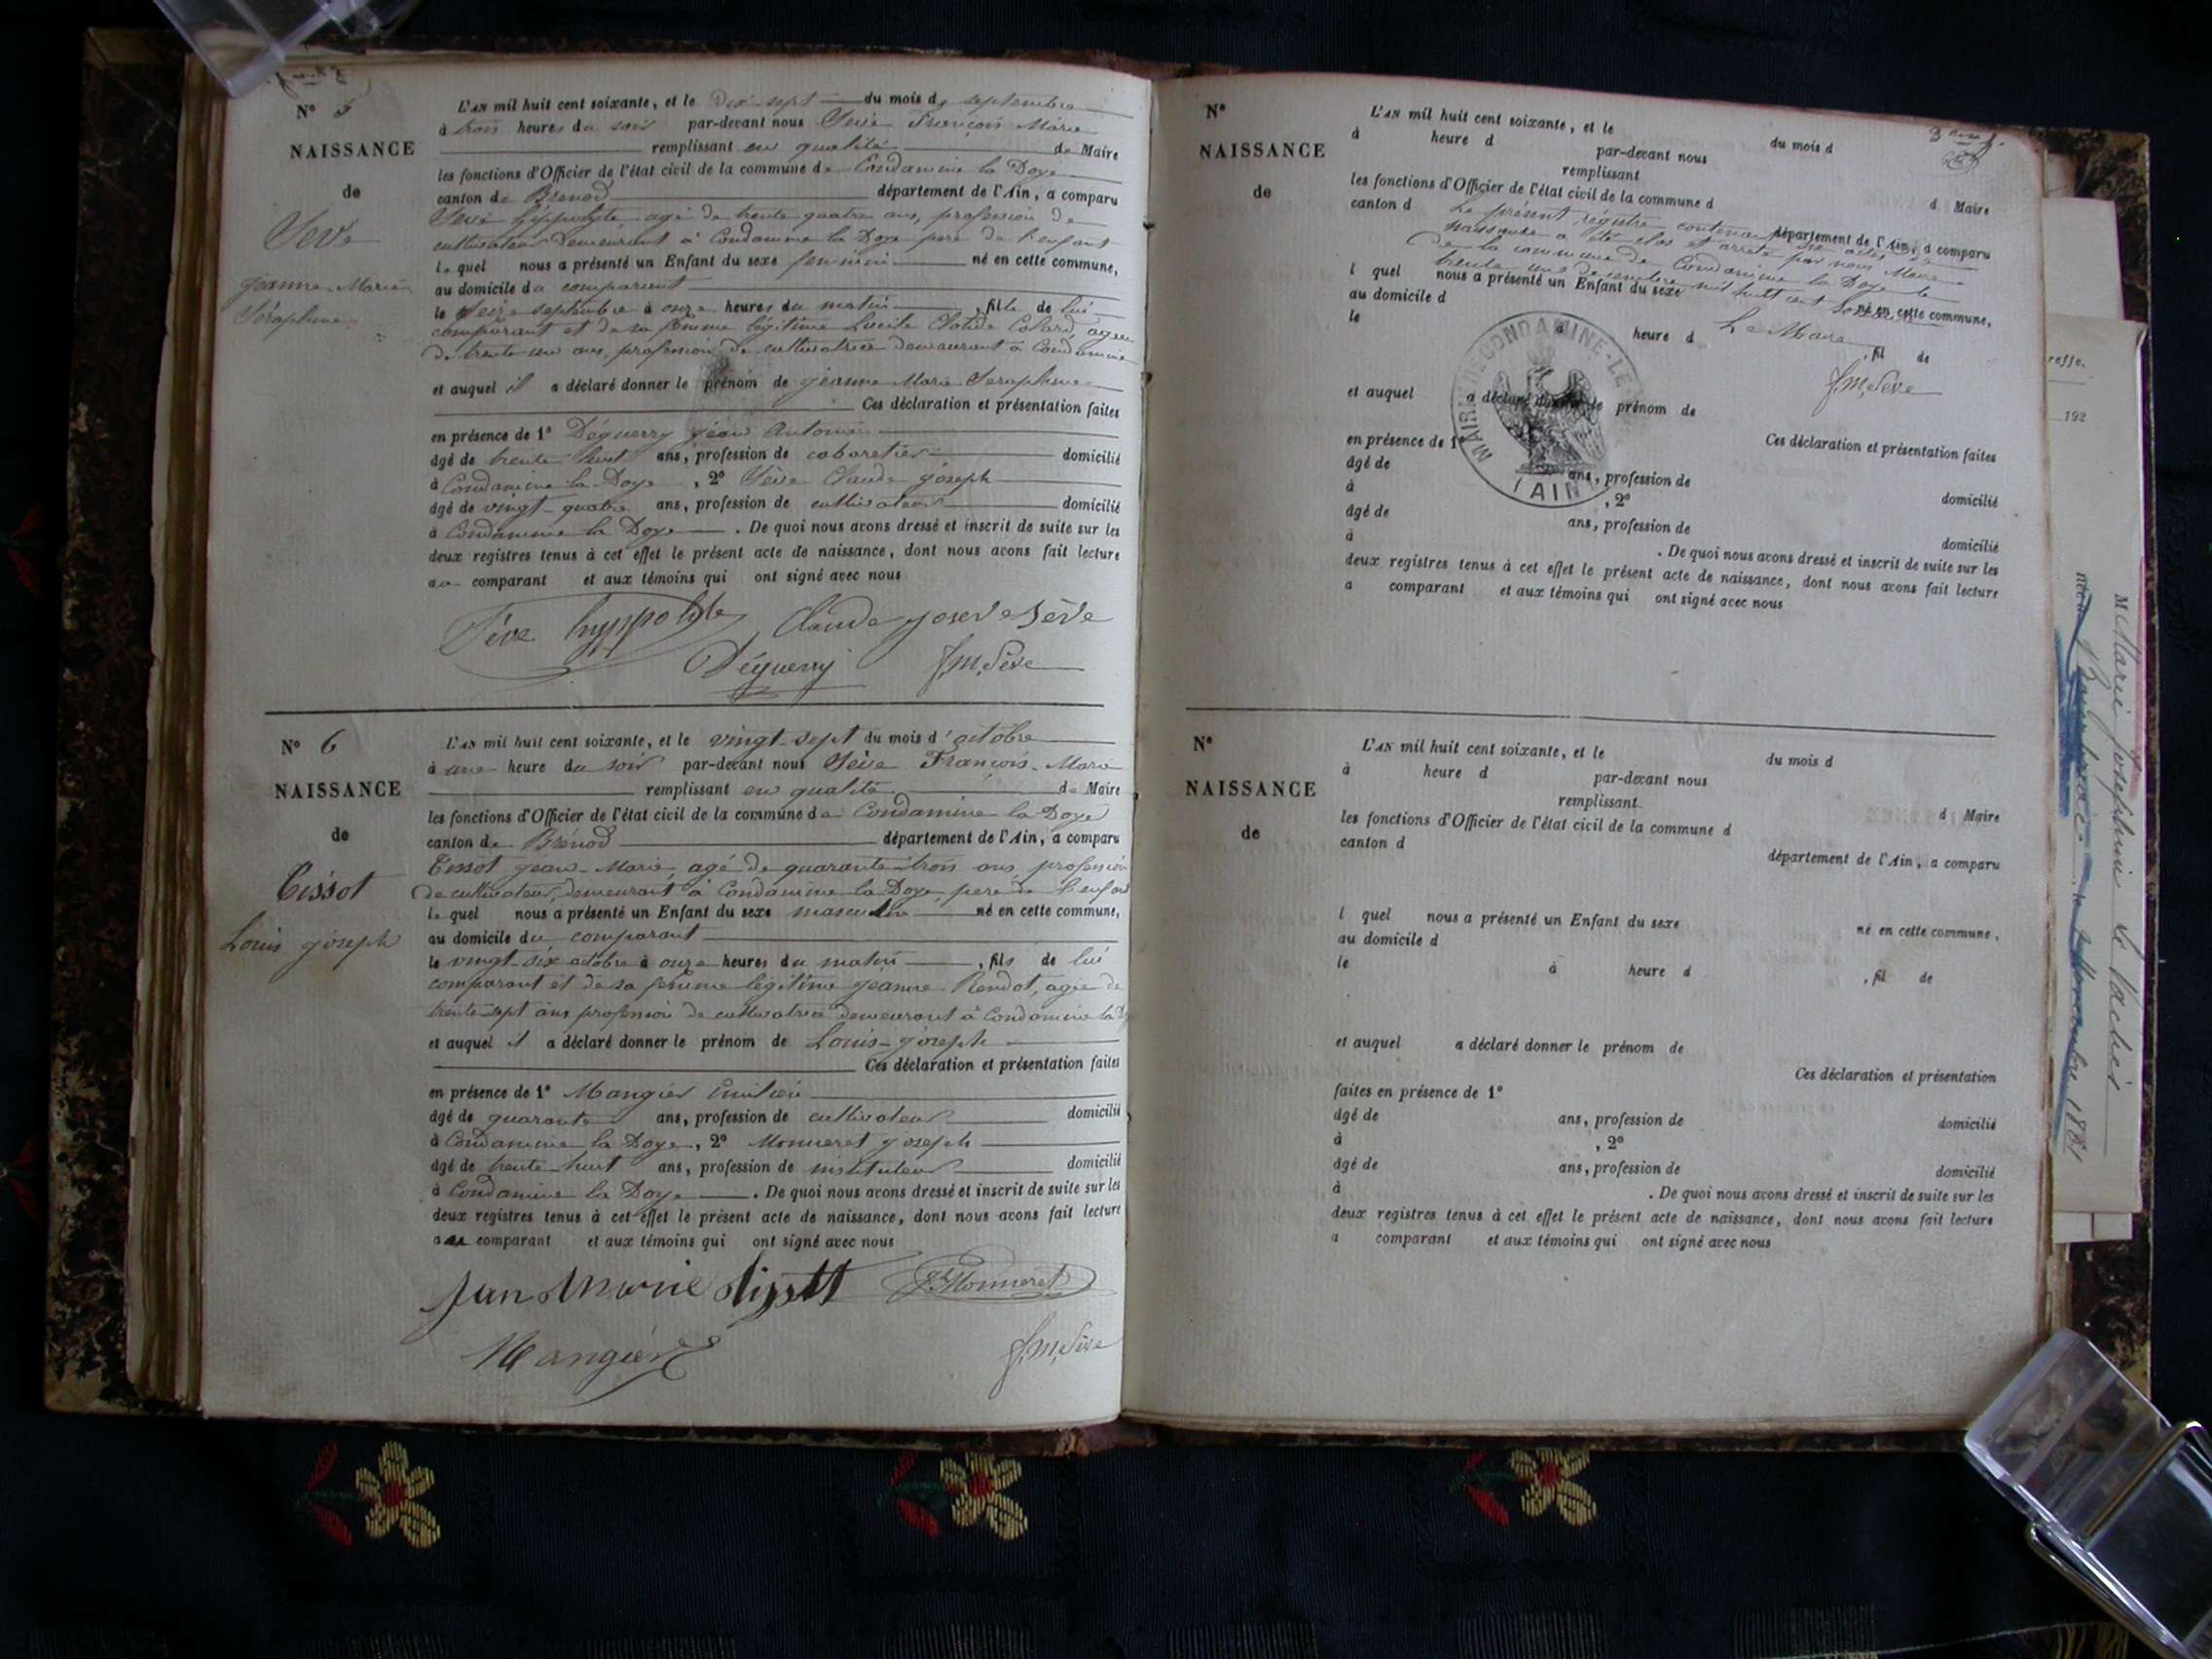 N° 5
NAISSANCE
de
Sève
Jeanne-Marie
Séraphine
L'AN mil huit cent soixante, et le Dix-sept du mois de septembre
à trois heures du soir par-devant nous Sève François Marie
remplissant en qualité de Maire
les fonctions d'Officier de l'état civil de la commune de Condamine la Doye
canton de Brenod département de l'Ain, a comparu
Sève hippolyte agé de trente quatre ans, profession de
cultivateur demeurant à Condamine la Doye pere de l'enfant
lequel nous a présenté un Enfant du sexe feminin né en cette commune,
au domicile du comparant
le seize septembre à onze heures du matin, fille de lui
comparant et de sa femme légitime Lucile Clotilde Colard agée
de trente un ans, profession de cultivatrice demeurant à Condamine
et auquel il a déclaré donner le prénom de jeanne Marie Seraphine
Ces déclaration et présentation faites
en présence de 1° Déguerry jean Antoine
âgé de trente huit ans, profession de cabaretier domicilié
à Condamine la Doye, 2° Sève Claude joseph
âgé de vingt-quatre ans, profession de cultivateur domicilié
à Condamine la Doye. De quoi nous avons dressé et inscrit de suite sur les
deux registres tenus à cet effet le présent acte de naissance, dont nous avons fait lecture
au comparant et aux témoins qui ont signé avec nous
Sève hyppolyte Claude josev Sève
Déguerry f. m. Sève
N° 6
NAISSANCE
de
Tissot
Louis joseph
L'AN mil huit cent soixante, et le vingt-sept du mois d'octobre
à une heure du soir par-devant nous Sève François-Marie
remplissant en qualité de Maire
les fonctions d'Officier de l'état civil de la commune de Condamine la Doye
canton de Brénod département de l'Ain, a comparu
Tissot jean-Marie, agé de quarante-trois ans, profession
de cultivateur, demeurant à Condamine la Doye, pere de l'enfant
lequel nous a présenté un Enfant du sexe masculin né en cette commune,
au domicile du comparant
le vingt-six octobre à onze heures du matin, fils de lui
comparant et de sa femme légitime jeanne Rendot, agée de
trente-sept ans profession de cultivatrice demeurant à Condamine la D
et auquel il a déclaré donner le prénom de Louis-joseph
Ces déclaration et présentation faites
en présence de 1° Mangier Emilien
âgé de quarante ans, profession de cultivateur domicilié
à Condamine la Doye, 2° Monneret joseph
âgé de trente-huit ans, profession de instituteur domicilié
à Condamine la Doye. De quoi nous avons dressé et inscrit de suite sur les
deux registres tenus à cet effet le présent acte de naissance, dont nous avons fait lecture
au comparant et aux témoins qui ont signé avec nous
Jan Marie tissott Jh Monneret
Mangier f. m. Sève
N°
NAISSANCE
de
L'AN mil huit cent soixante, et le du mois d
à heure d par-devant nous
remplissant
les fonctions d'Officier de l'état civil de la commune d d Maire
canton d département de l'Ain, a comparu
Le présent régistre contenant six actes de
naissance a été clos et arrêté par nous Maire
de la commune de Condamine la Doye le
trente un decembre mil huit cent soixante
l quel nous a présenté un Enfant du sexe né en cette commune,
au domicile d
le à heure d , fil de
Le Maire
f. m. Sève
MAIRIE DE CONDAMINE-LE
(AIN)
et auquel a déclaré donner le prénom de
Ces déclaration et présentation faites
en présence de 1°
âgé de ans, profession de domicilié
à , 2°
âgé de ans, profession de domicilié
à . De quoi nous avons dressé et inscrit de suite sur les
deux registres tenus à cet effet le présent acte de naissance, dont nous avons fait lecture
a comparant et aux témoins qui ont signé avec nous
N°
NAISSANCE
de
L'AN mil huit cent soixante, et le du mois d
à heure d par-devant nous
remplissant d Maire
les fonctions d'Officier de l'état civil de la commune d
canton d département de l'Ain, a comparu
l quel nous a présenté un Enfant du sexe né en cette commune,
au domicile d
le à heure d , fil de
et auquel a déclaré donner le prénom de
Ces déclaration et présentation
faites en présence de 1°
âgé de ans, profession de domicilié
à , 2°
âgé de ans, profession de domicilié
à . De quoi nous avons dressé et inscrit de suite sur les
deux registres tenus à cet effet le présent acte de naissance, dont nous avons fait lecture
a comparant et aux témoins qui ont signé avec nous
resse.
192
M Marie Joséphine
1881